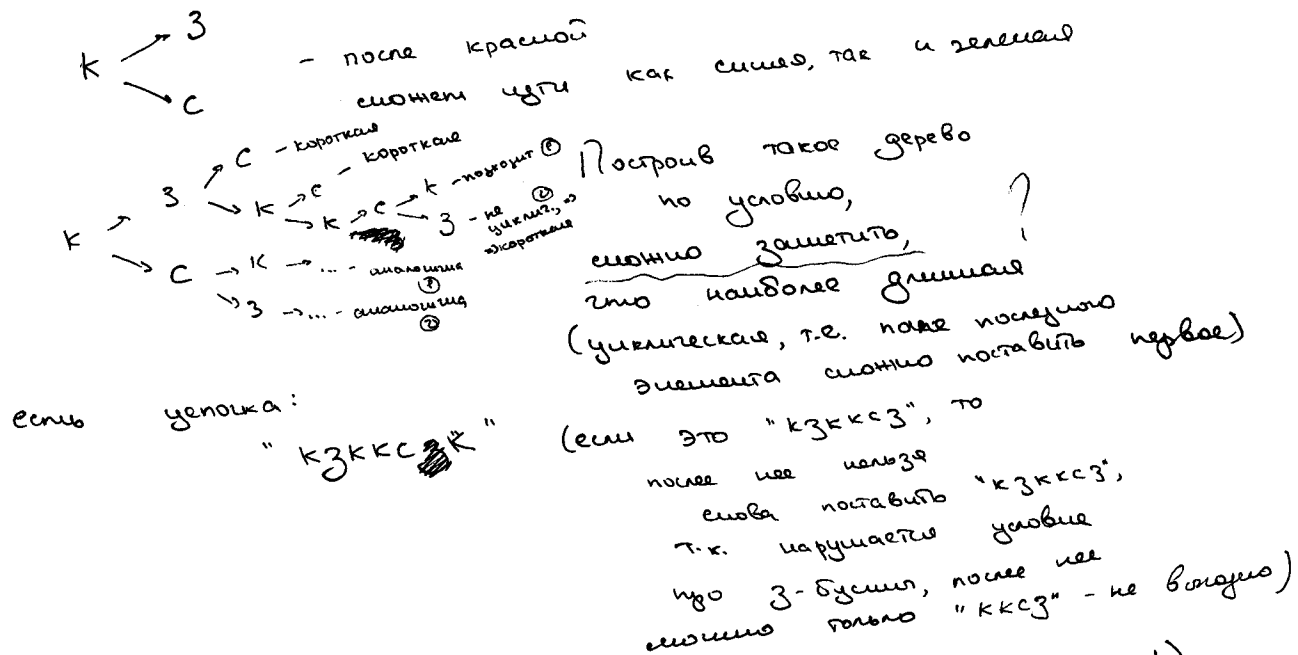 К → З
→ С
- после красной
может идти как синяя, так и зеленая
К → З → С - короткая
→ К → С - короткая
→ К → С → К - подходит ①
→ З - не циклич., ② =>
=> короткая
→ С → К → ... - аналогична
①
→ З → ... - аналогична
②
Построив такое дерево
по условию,
можно заметить, ?
что наиболее длинная
(циклическая, т.е. после последнего
элемента можно поставить первое)
есть цепочка:
"КЗККСК" (если это "КЗККСЗ", то
после нее нельзя
снова поставить "КЗККСЗ",
т.к. нарушается условие
про З-бусины, после нее
можно только "ККСЗ" - не выгодно)